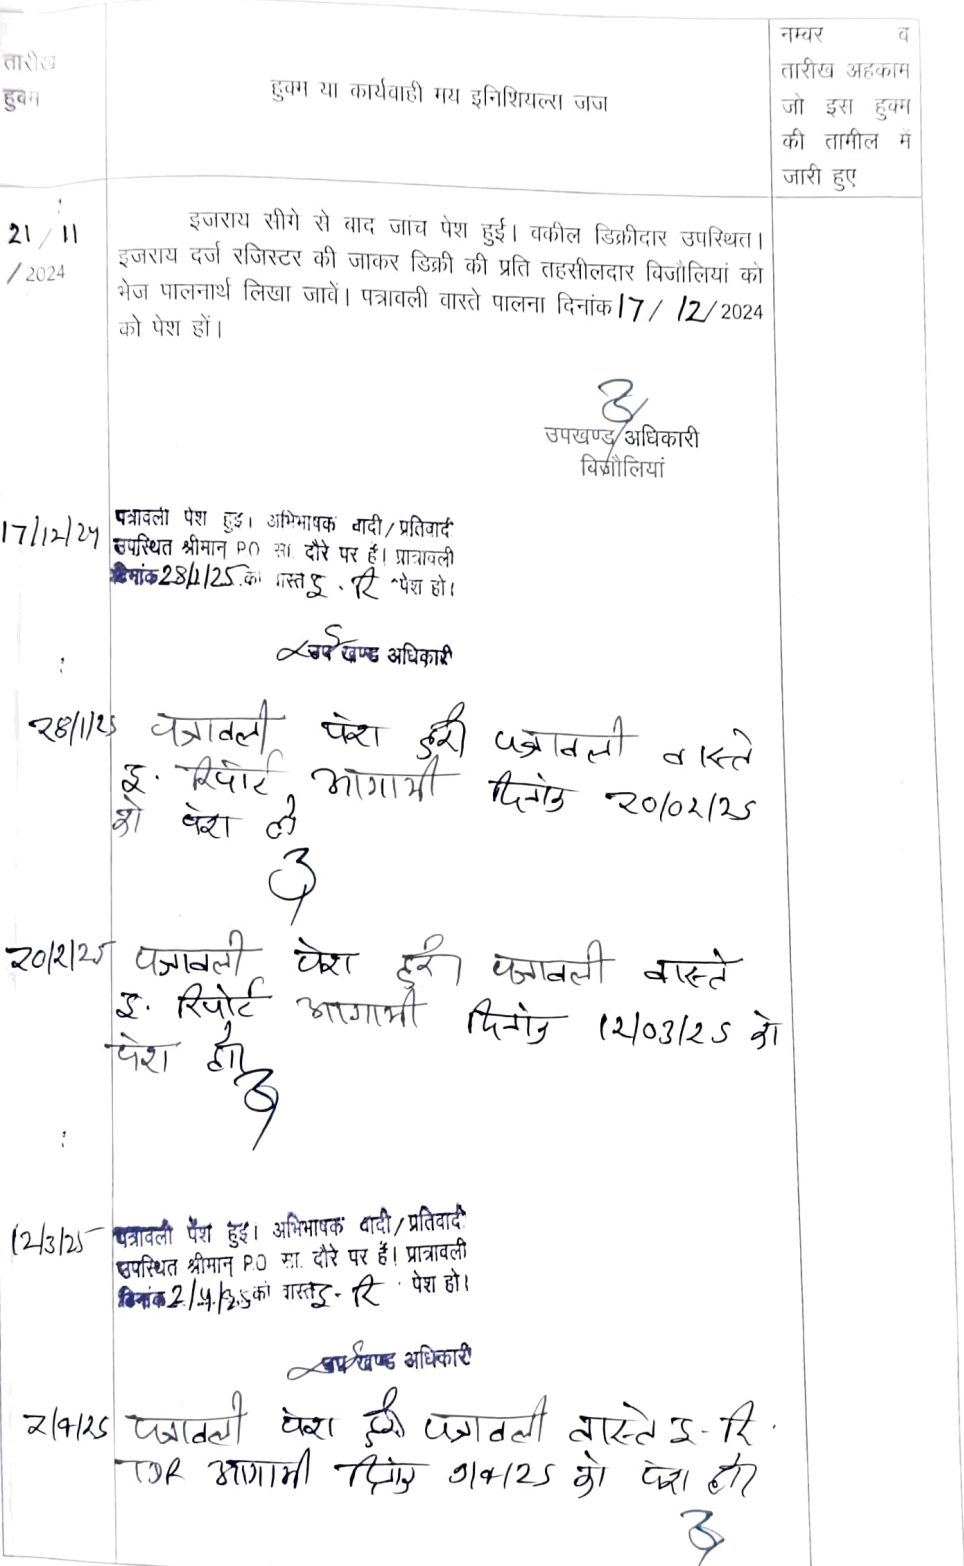 तारीख
हुक्म
हुक्म या कार्यवाही मय इनिशियल्स जज
नम्बर व
तारीख अहकाम
जो इस हुक्म
की तामील में
जारी हुए
21/11
/2024
इजराय सीगे से बाद जांच पेश हुई। वकील डिक्रीदार उपस्थित।
इजराय दर्ज रजिस्टर की जाकर डिक्री की प्रति तहसीलदार बिजौलियां को
भेज पालनार्थ लिखा जावें। पत्रावली वास्ते पालना दिनांक 17/12/2024
को पेश हों।
उपखण्ड अधिकारी
बिजौलियां
17/12/24
पत्रावली पेश हुई। अभिभाषक वादी/प्रतिवादी
उपस्थित श्रीमान P.O सा. दौरे पर हैं। प्रात्रावली
दिनांक 28/1/25 को वास्ते इ. रि पेश हो।
उप खण्ड अधिकारी
28/1/25 पत्रावली पेश हुई पत्रावली वास्ते
इ. रिपोर्ट आगामी दिनांक 20/02/25
को पेश हो
20/2/25 पत्रावली पेश हुई। पत्रावली वास्ते
इ. रिपोर्ट आगामी दिनांक 12/03/25 को
पेश हो।
12/3/25
पत्रावली पेश हुई। अभिभाषक वादी/प्रतिवादी
उपस्थित श्रीमान P.O सा. दौरे पर हैं। प्रात्रावली
दिनांक 2/4/25 को वास्ते इ- रि पेश हो।
उप खण्ड अधिकारी
2/4/25 पत्रावली पेश हुई पत्रावली वास्ते इ- रि.
TDR आगामी दिनांक 9/4/25 को पेश हो।